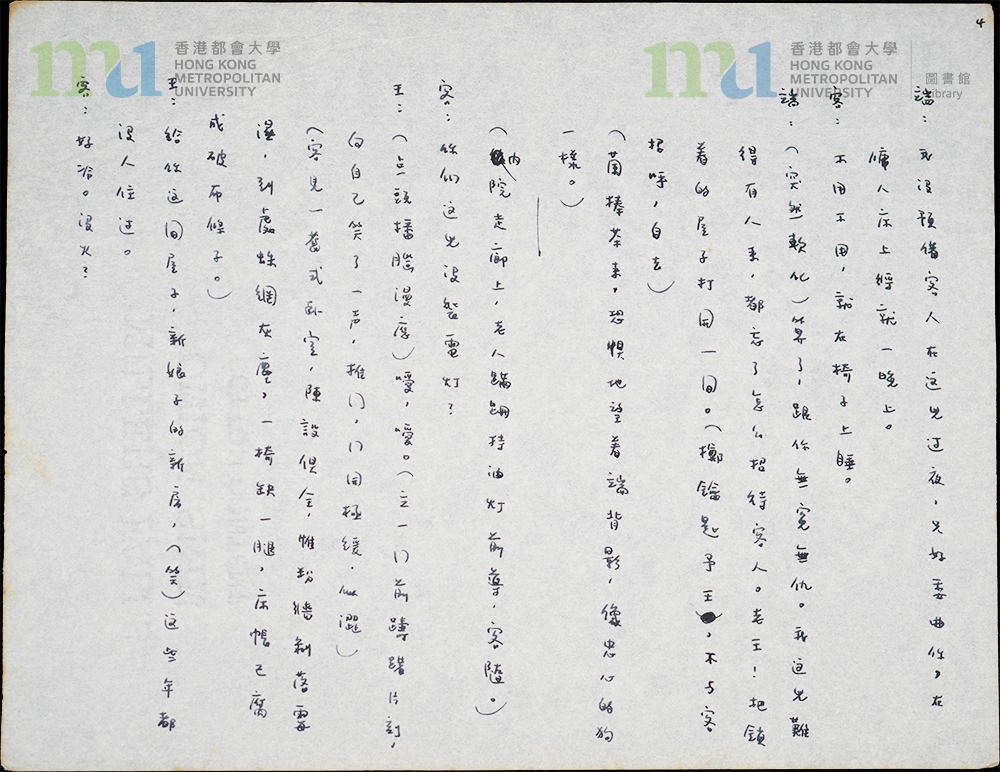 4
香港都會大學
HONG KONG
METROPOLITAN
UNIVERSITY
香港都會大學
HONG KONG
METROPOLITAN
UNIVERSITY
圖書館
Library
端：我沒預備客人在这兒过夜，只好委曲你，在
傭人床上將就一晚上。
客：不用不用，就在椅子上睡。
端：（突然軟化）算了，跟你無寃無仇。我这兒難
得有人来，都忘了怎么招待客人。老王！把鎖
着的屋子打開一间。（擲鑰匙予王，不与客
招呼，自去）
（菌捧茶来，恐惧地望着端背影，像忠心的狗
一樣。）
（內院走廊上，老人蹒跚持油灯前導，客隨。）
客：你们这兒沒装電灯？
王：（点頭播腦漫应）噯，噯。（立一门前躊躇片刻，
向自己笑了一声，推门，门開極緩，似澀）
（客見一舊式卧室，陳設俱全，惟粉牆剝落霉
濕，到處蛛網灰塵，一椅缺一腿，床帳已腐
成破布條子。）
王：給你这间屋子，新娘子的新房，（笑）这些年都
沒人住过。
客：好冷。沒火？